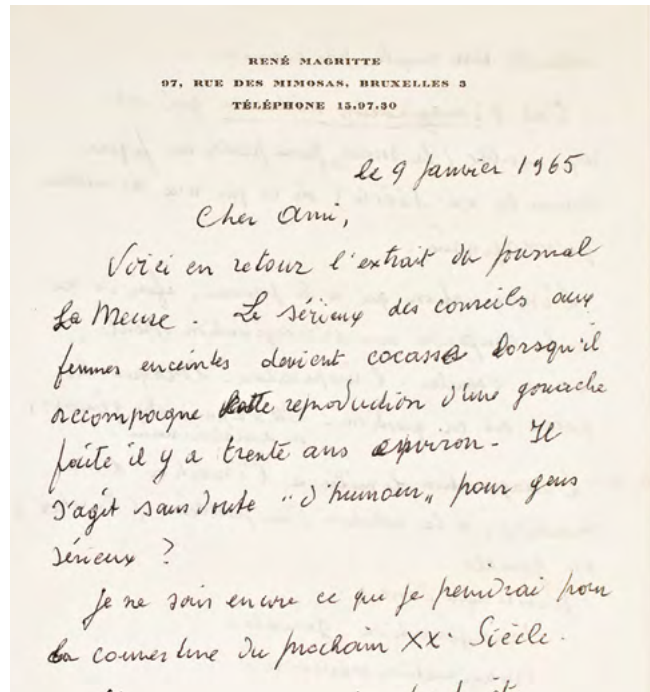 RENÉ MAGRITTE
97, RUE DES MIMOSAS, BRUXELLES 3
TÉLÉPHONE 15.97.30
le 9 Janvier 1965
Cher Ami,
Voici en retour l'extrait du journal
La Meuse. Le sérieux des conseils aux
femmes enceintes devient cocasse lorsqu'il
accompagne cette reproduction d'une gouache
faite il y a trente ans environ. Il
s'agit sans doute "d'humour" pour gens
sérieux ?
Je ne sais encore ce que je peindrai pour
la couverture du prochain XX° Siècle.